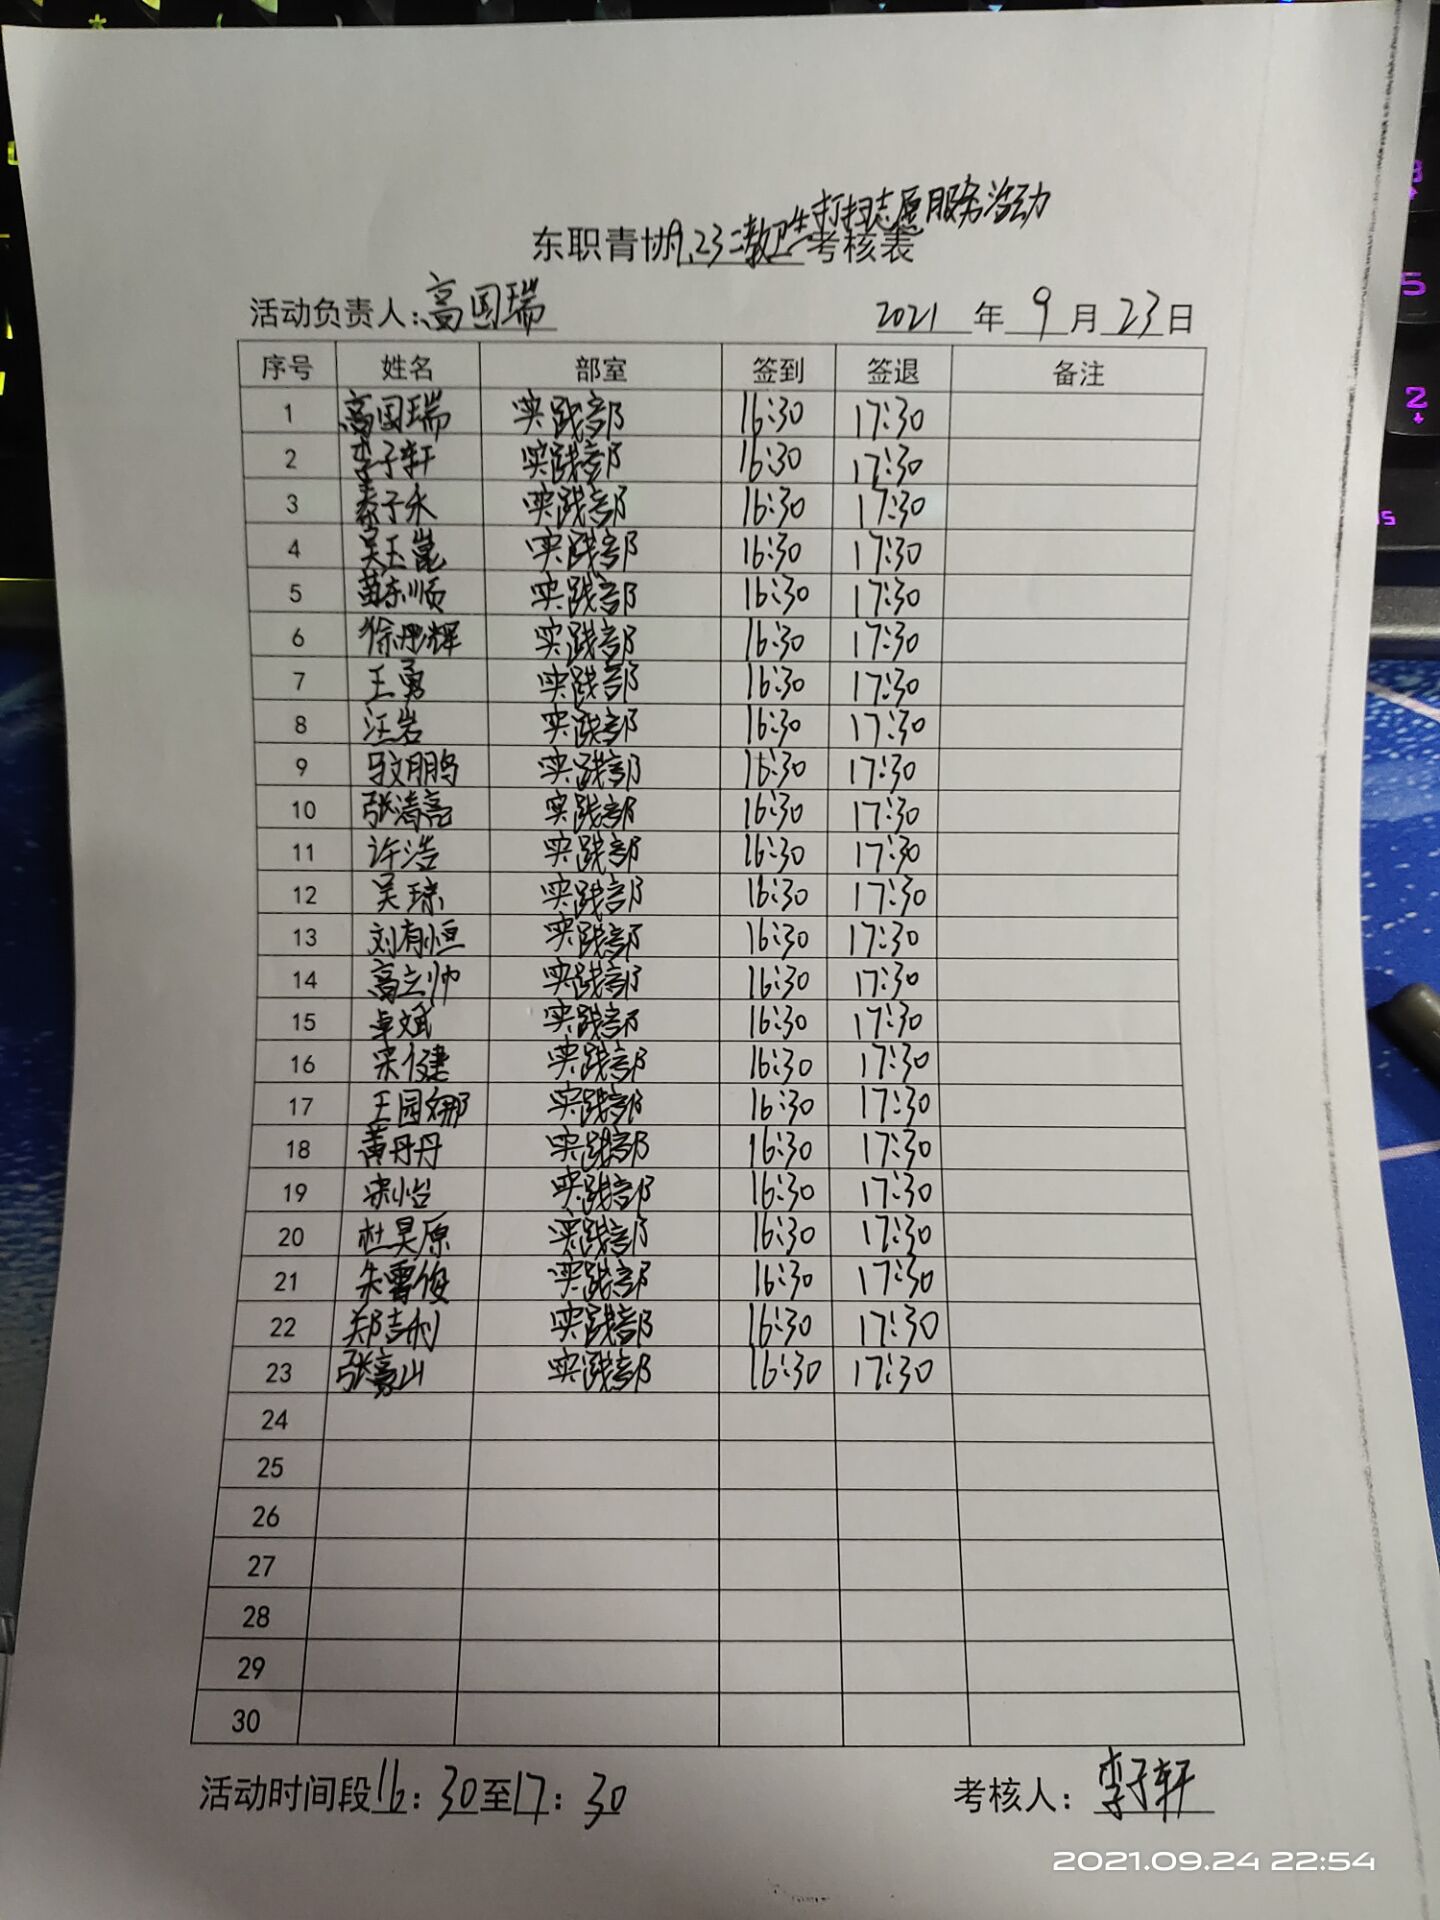 东职青协9.23二教卫生打扫志愿服务活动考核表
活动负责人:高国瑞 2021年9月23日
序号 姓名 部室 签到 签退 备注
1 高国瑞 实践部 16:30 17:30
2 李子轩 实践部 16:30 17:30
3 秦子永 实践部 16:30 17:30
4 吴玉崑 实践部 16:30 17:30
5 苗东顺 实践部 16:30 17:30
6 徐兆辉 实践部 16:30 17:30
7 王勇 实践部 16:30 17:30
8 汪岩 实践部 16:30 17:30
9 马文鹏 实践部 16:30 17:30
10 张清亮 实践部 16:30 17:30
11 许浩 实践部 16:30 17:30
12 吴琼 实践部 16:30 17:30
13 刘有恒 实践部 16:30 17:30
14 高立帅 实践部 16:30 17:30
15 卓斌 实践部 16:30 17:30
16 宋健 实践部 16:30 17:30
17 王园娜 实践部 16:30 17:30
18 黄丹丹 实践部 16:30 17:30
19 宋怡 实践部 16:30 17:30
20 杜昊原 实践部 16:30 17:30
21 朱雪俊 实践部 16:30 17:30
22 郑吉利 实践部 16:30 17:30
23 张豪山 实践部 16:30 17:30
24
25
26
27
28
29
30
活动时间段16:30至17:30 考核人:李子轩
2021.09.24 22:54